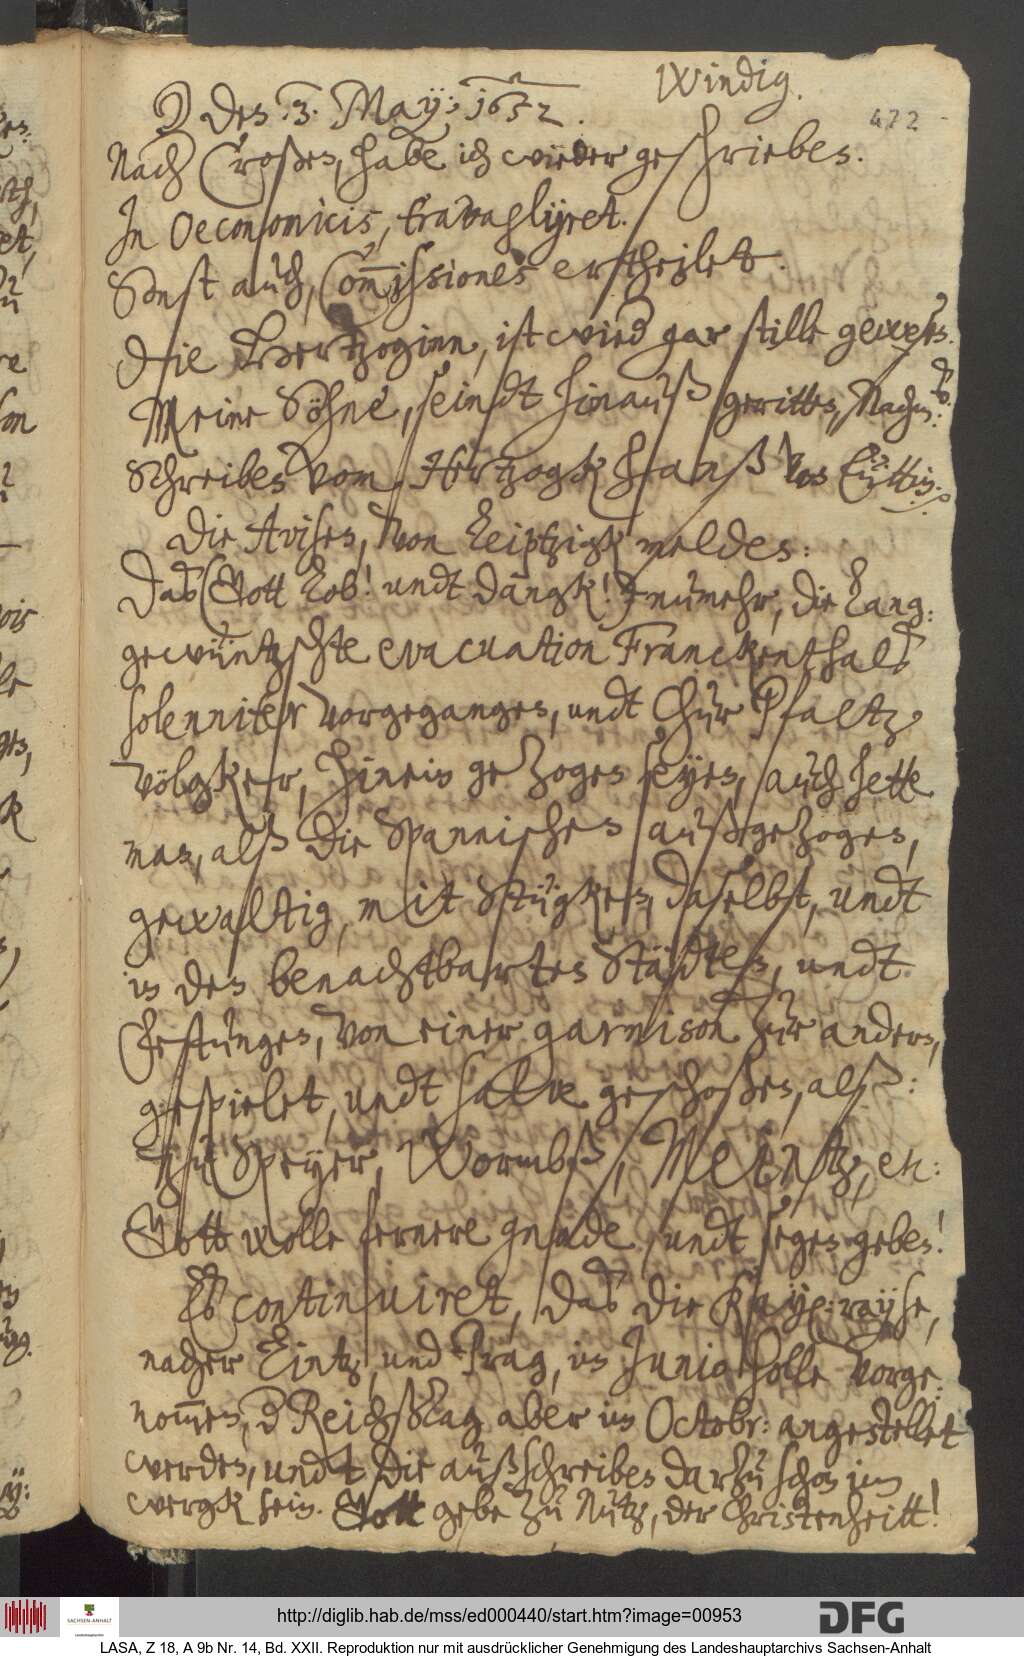 ☽ den 3. May: 1652.
Windig.
472
Nach Croßen, habe ich wieder geschrieben.
In Oeconomicis, travagliiret.
Sonst auch, Commissiones ertheilet.
Die Hertzoginn, ist wied gar stille gewesen.
Meine Söhne, seindt hinauß geritten, Nachm:
Schreiben vom Hertzogk Hanß von Euttin.
Die Avisen, von Leiptzigk melden:
Daß Gott Lob! undt Dangk! numehr, die Lang:
gewüntzschte evacuation Franckenthalß
solenniter vorgegangen, undt Chur Pfaltz
völgker, hinein gezogen seyen, auch hette
man, alß die Spannischen außgezogen,
gewaltig, mit Stügken, daselbst, undt
in den benachtbarten Städten, undt
Festungen, von einer garnison zur andern,
gespielet, undt salve geschoßen, alß:
zu Speyer, Wormbß, Meintz, etc:
Gott wolle fernere gnade, undt segen geben!
Es continuiret, daß die Kayße: rayse,
nacher Lintz, und Prag, im Junio solle vorge:
nommen, d Reichßtag aber im Octobr: angestellet
werden, undt die außschreiben darzu schon im
wergk sein. Gott gebe zu Nutz, der Christenheitt!
http://diglib.hab.de/mss/ed000440/start.htm?image=00953
SACHSEN-ANHALT
DFG
LASA, Z 18, A 9b Nr. 14, Bd. XXII. Reproduktion nur mit ausdrücklicher Genehmigung des Landeshauptarchivs Sachsen-Anhalt